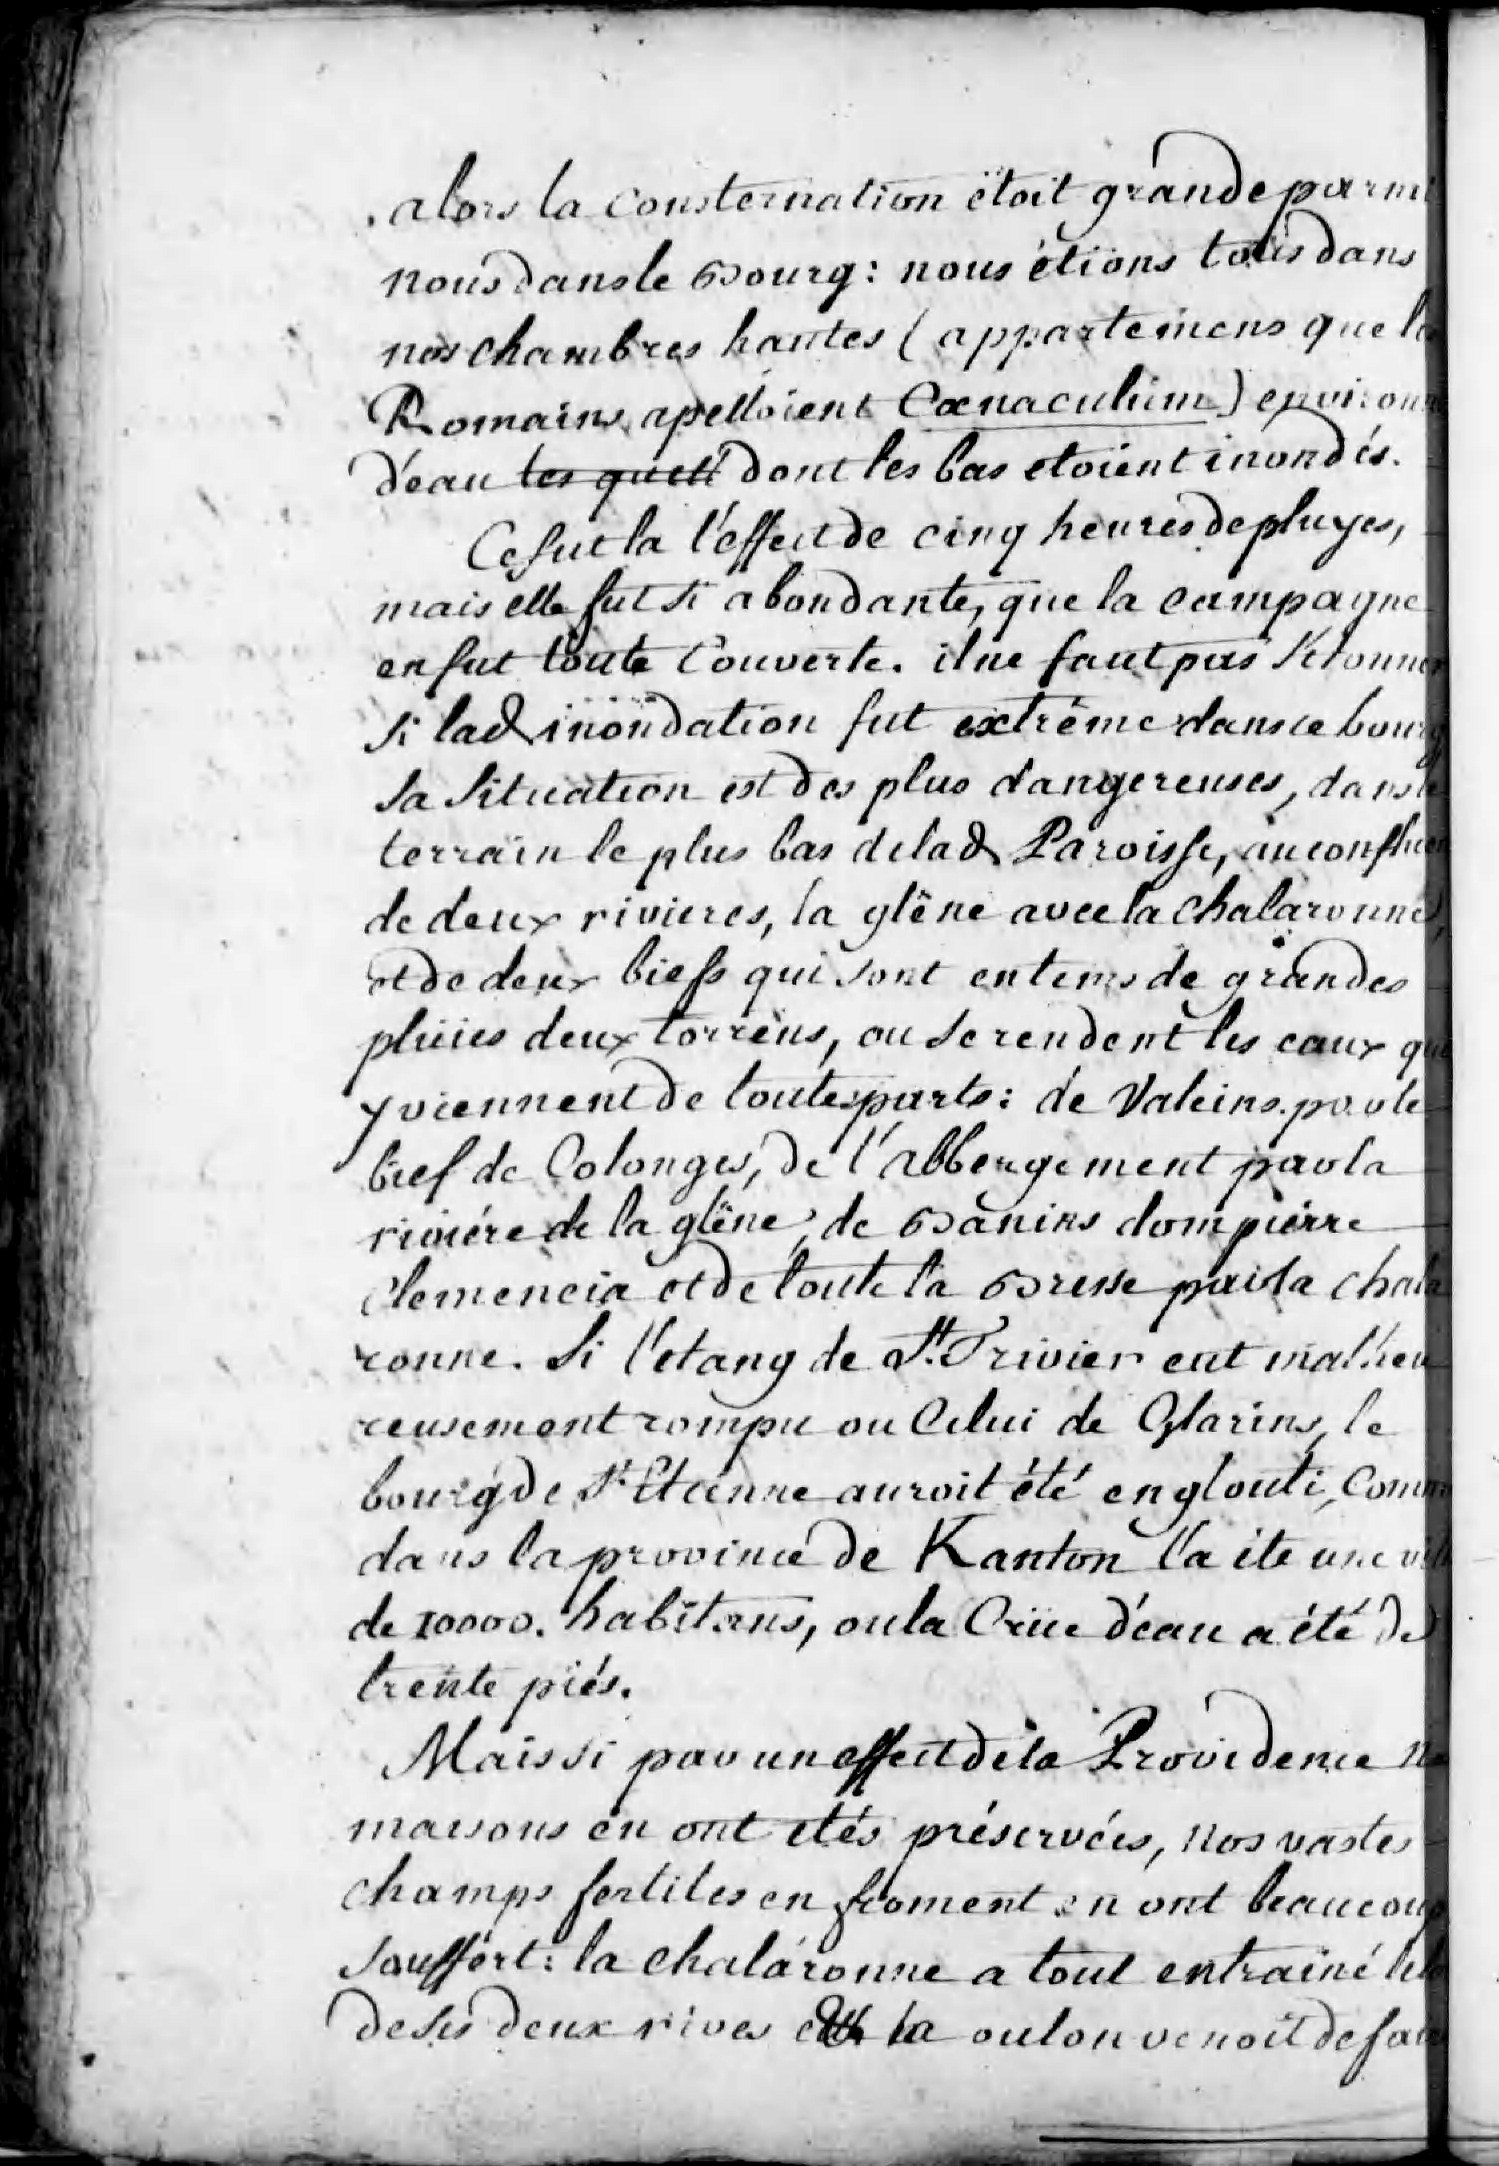 . alors la consternation étoit grande parmi
nous dans le Bourg : nous étions tous dans
nos chambres hautes ( appartemens que les
Romains apelloient Cœnaculum ) environ
d'eau les quell dont les bas etoient inondés.
Ce fut la l'effect de cinq heures de pluyes,
mais elle fut si abondante, que la campagne
en fut toute Couverte. il ne faut pas s'etonner
si lad inondation fut extréme dans ce bourg
sa situation est des plus dangereuses, dans le
terrain le plus bas de lad Paroisse, au confluen
de deux rivieres, la glêne avec la chalaronne,
et de deux biefs qui sont en tems de grandes
pluies deux torrens, ou se rendent les eaux qui
y viennent de toutes parts : de Valeins par le
bief de Colonges, de l'abbergement par la
riviére de la glêne, de Banins dompierre
Clemencia et de toute la Bresse par la chala
ronne. Si l'etang de St. Trivier eut malheu
reusement rompu ou Celui de Glarins, le
bourg de St Etienne auroit été englouti, comme
dans la province de Kanton l'a éte une ville
de 10000. habitans, ou la Crüe d'eau a été de
trente piés.
Mais si par un effect de la Providence nos
maisons en ont etés préservées, nos vastes
champs fertiles en froment en ont beaucoup
souffert : la chalaronne a tout entrainé le lo
de ses deux rives la ou lon venoit de fai